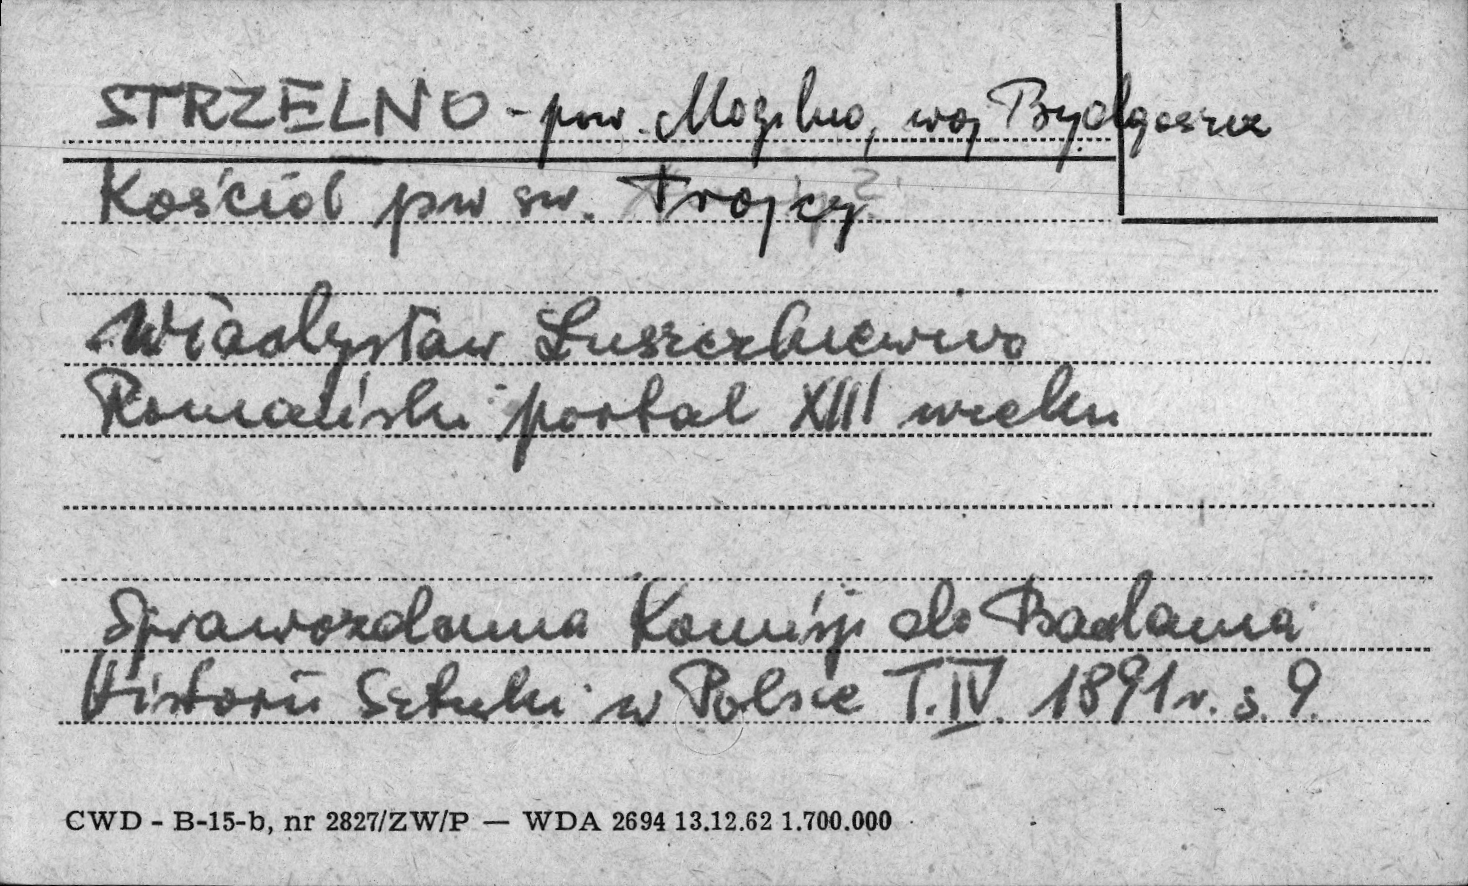 STRZELNO - pow. Mogilno, woj Bydgoszcz
Kościół pw św. Trójcy
Władysław Łuszczkiewicz
Romański portal XIII wieku
Sprawozdania Komisji do Badania
Historii Sztuki w Polsce T. IV. 1891 r. s. 9.
CWD - B-15-b, nr 2827/ZW/P — WDA 2694 13.12.62 1.700.000